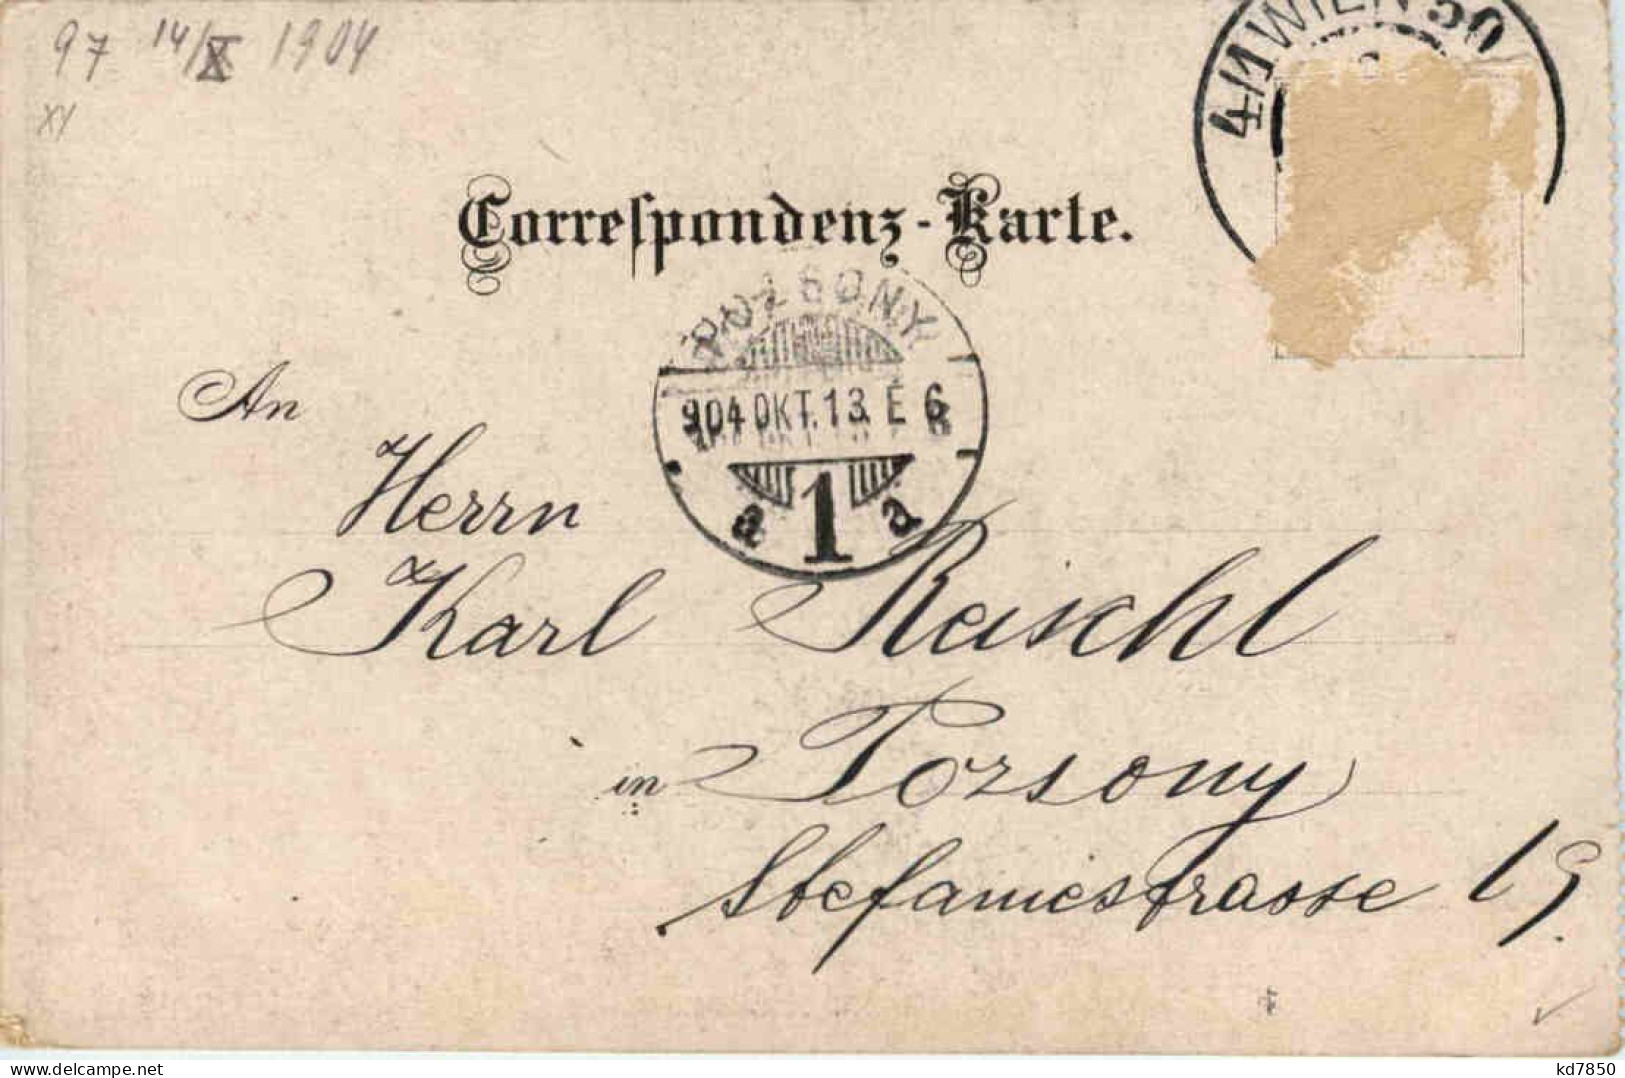 97 14/X 1904
XV
4/1 WIEN 50
Correspondenz-Karte.
POZSONY
904 OKT. 13. E 6
a 1 a
An
Herrn
Karl Reischl
in Pozsony
Stefaniestrasse 19.
kd7850